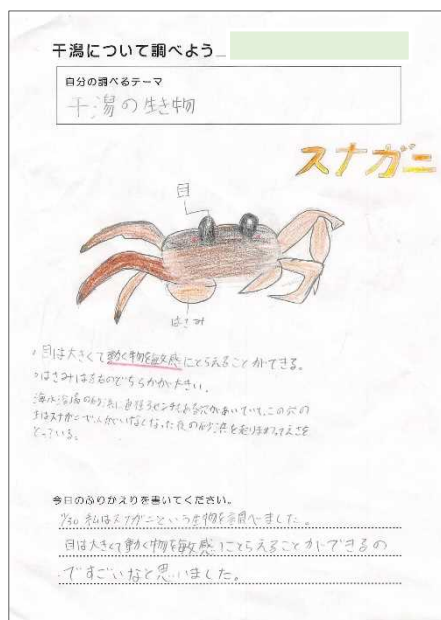 干潟について調べよう
自分の調べるテーマ
干潟の生き物
スナガニ
目
はさみ
・目は大きくて動く物を敏感にとらえることができる。
・はさみは左右のどちらかが大きい。
海水浴場の砂浜に直径3センチ
はスナガニで人がいなくなった夜の砂浜を走りまわってえさを
とっている。
今日のふりかえりを書いてください。
私はスナガニという生物を調べました。
目は大きくて動く物を敏感にとらえることができるの
ですごいなと思いました。